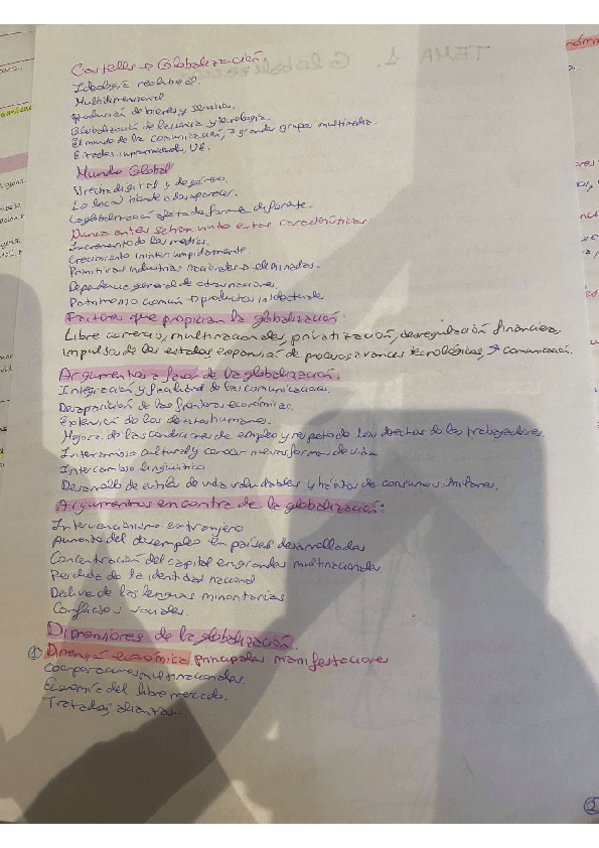 Castells → Globalización.
Ideología neoliberal.
Multidimensional
Producción de bienes y servicios.
Globalización de la ciencia y tecnología.
El mundo de la comunicación, 7 grandes grupos multimedia.
Estados supranacionales, UE.
Mundo Global
Brecha digital y de género.
Lo local tiende a desaparecer.
La globalización afecta de forma diferente.
Nunca antes se han unido estas características:
Incremento de los medios.
Crecimiento ininterrumpidamente.
Primitivas industrias nacionales → eliminadas.
Dependencia general de otras naciones.
Patrimonio común → productos intelectuales
Factores que propician la globalización:
Libre comercio, multinacionales, privatización, desregulación financiera
impulso de los estados, expansión de avances tecnológicos, → comunicación.
Argumentos a favor de la globalización:
Integración y de las comunicaciones.
Desaparición de las fronteras económicas.
Extensión de los derechos humanos.
Mejora de las condiciones de empleo y respeto de los derechos de los trabajadores.
Intercambio cultural y conocer nuevas formas de vida
Intercambio lingüístico
Desarrollo de estilos de vida saludables y hábitos de consumo similares.
Argumentos en contra de la globalización:
Intervencionismo extranjero
Aumento del desempleo en países desarrollados
Concentración del capital en grandes multinacionales
Perdida de la identidad nacional
Declive de las lenguas minoritarias
Conflictos sociales.
Dimensiones de la globalización.
① Dimensión económica principales manifestaciones
Corporaciones multinacionales.
Economía del libre mercado.
Tratados, alianzas...
②
TEMA 1. Globalización